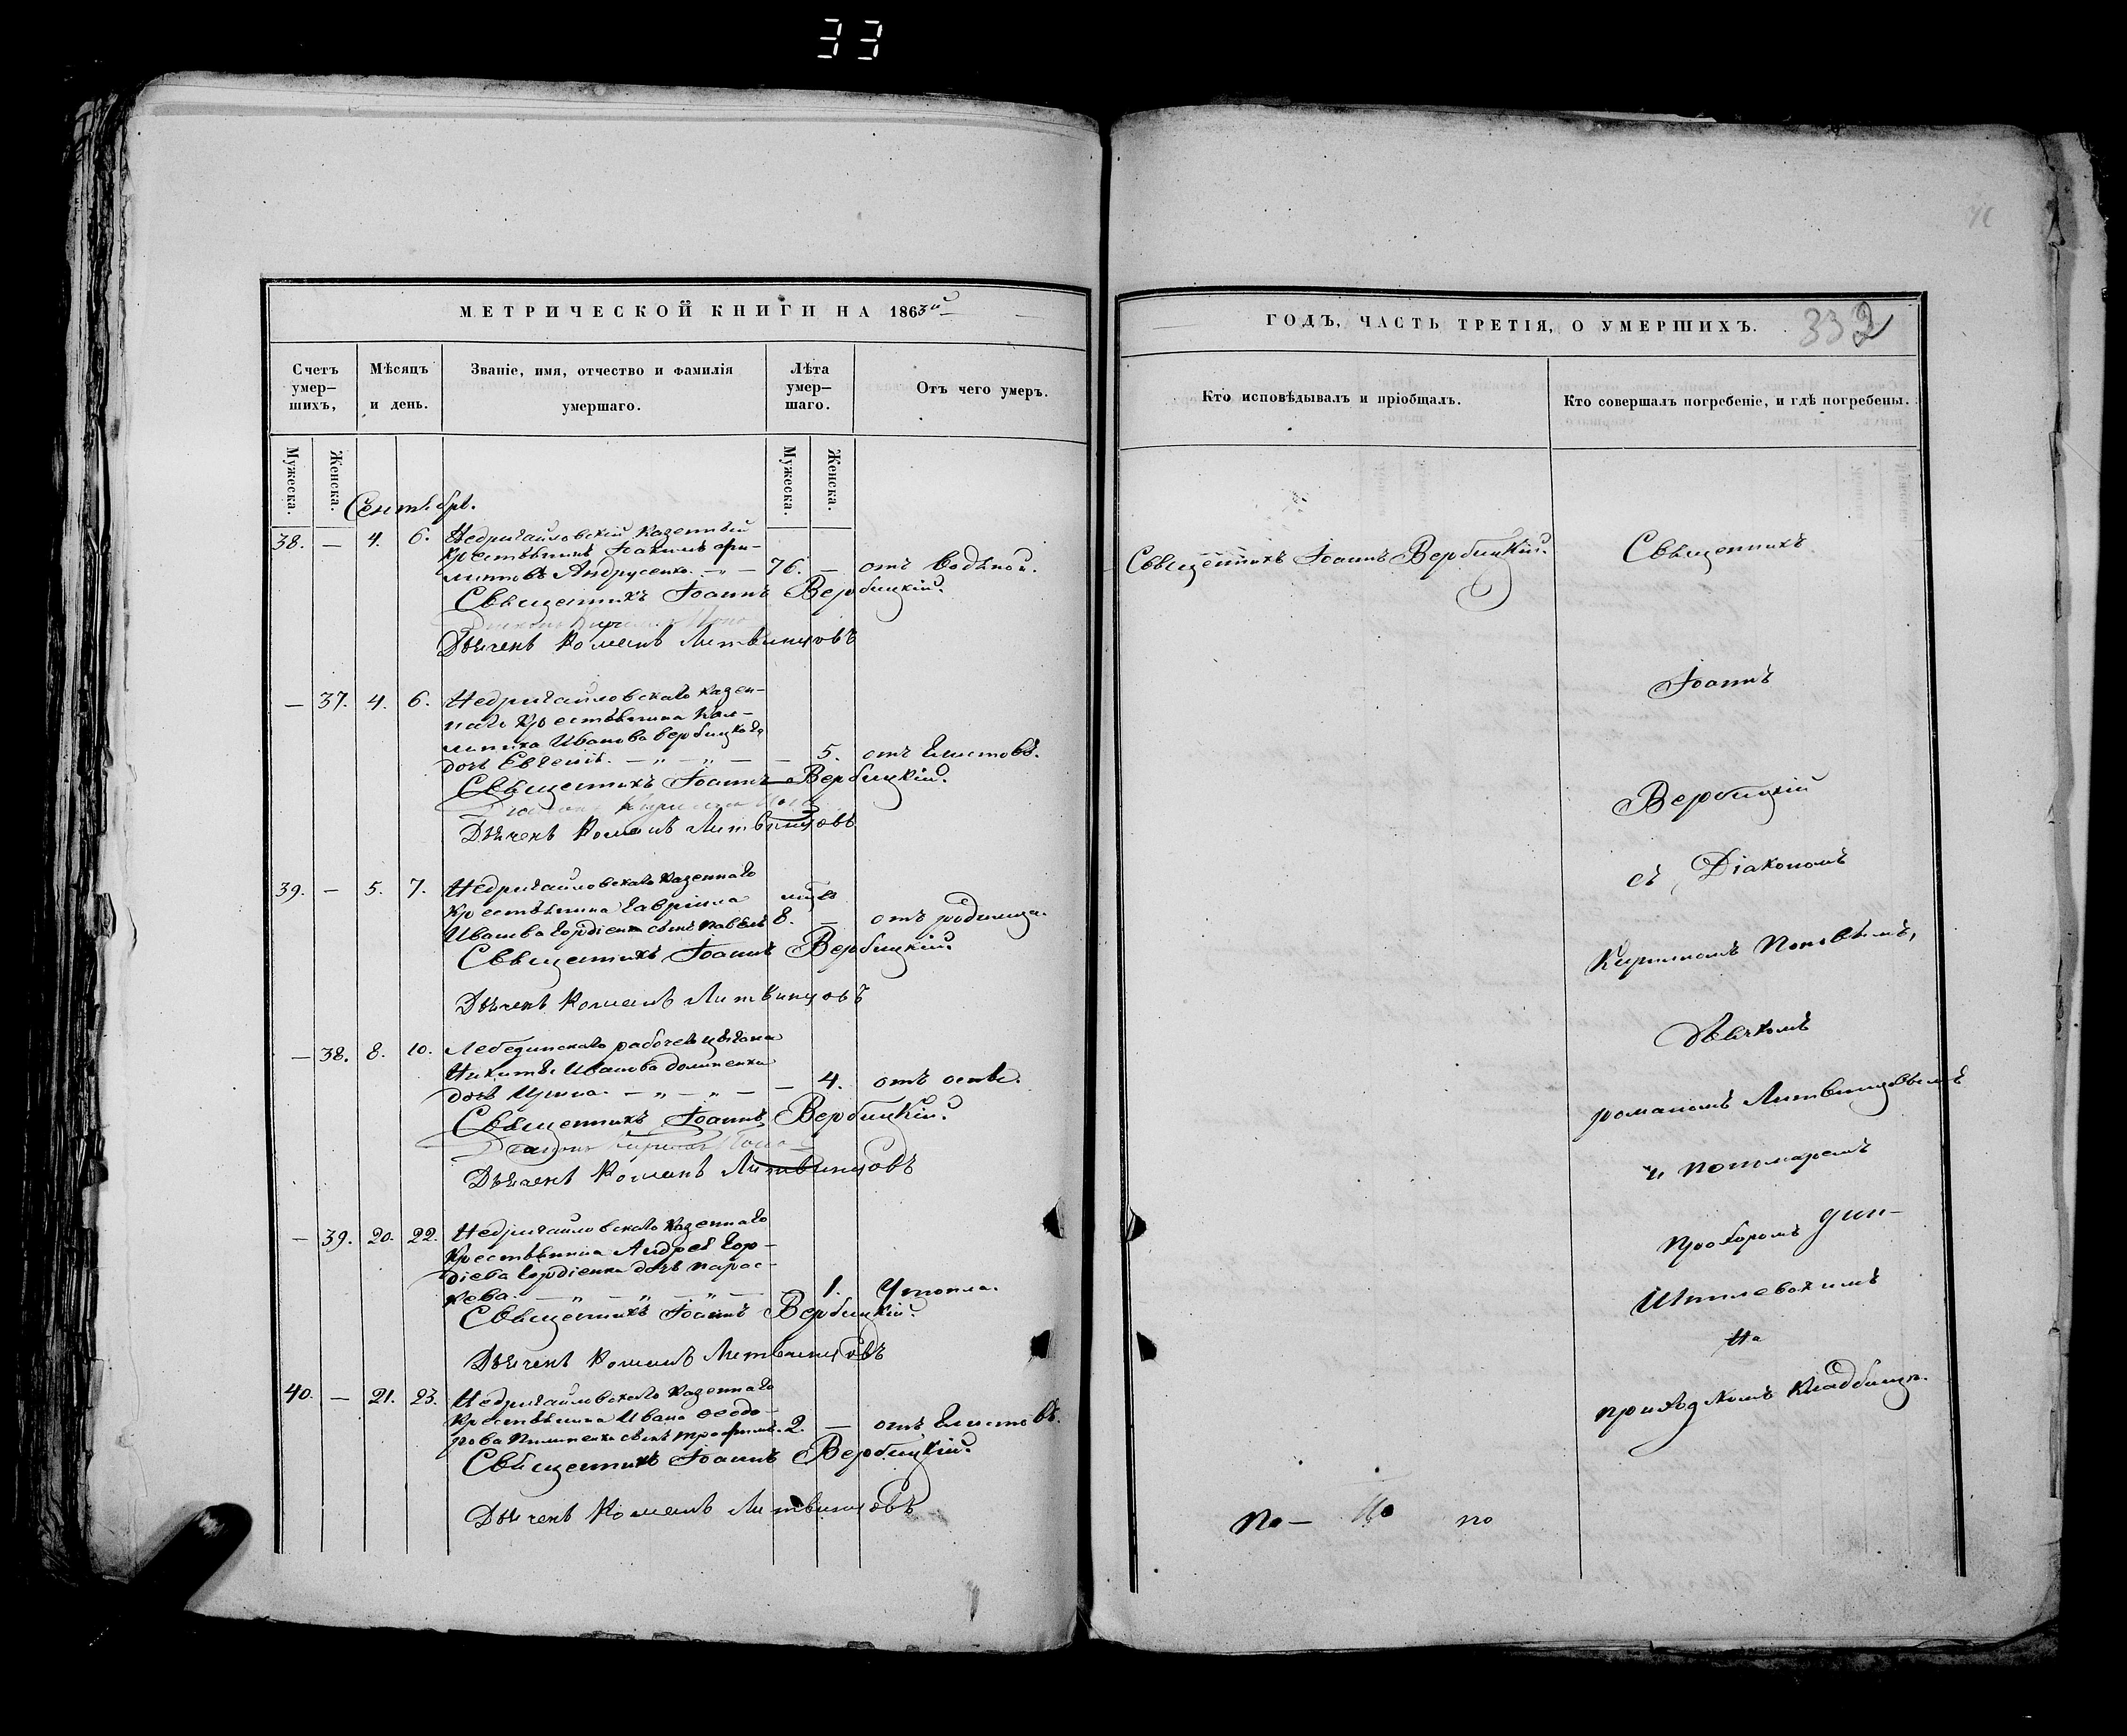 33
МЕТРИЧЕСКОЙ КНИГИ НА 1863й
Счетъ умер-
шихъ,
Мѣсяцъ
и день.
Званіе, имя, отчество и фамилія
умершаго.
Лѣта
умер-
шаго.
Отъ чего умеръ.
Мужеска.
Женска.
Мужеска.
Женска.
Сентябрь.
38. — 4. 6. Недригайловскій казенный
крестьянинъ Іоакимъ Фи-
липповъ Андрусенко. — „ — 76. — отъ водяной.
Священникъ Іоаннъ Вербицкій.
Дьячекъ Романъ Литвинцовъ
— 37. 4. 6. Недригайловскаго казен-
наго крестьянина
Иванова Вербицкаго
дочь Евгенія. — „ — „ — — 5. отъ глистовъ.
Священникъ Іоаннъ Вербицкій.
Дьячекъ Романъ Литвинцовъ
39. — 5. 7. Недригайловскаго казеннаго
крестьянина Гавріила
Иванова Гордіенка сынъ Павелъ 8. — отъ родимца.
Священникъ Іоаннъ Вербицкій.
Дьячекъ Романъ Литвинцовъ
— 38. 8. 10. Лебединскаго
Никиты Иванова
дочь Ирина. — „ — „ — — 4. отъ оспы.
Священникъ Іоаннъ Вербицкій.
Дьячекъ Романъ Литвинцовъ
— 39. 20. 22. Недригайловскаго казеннаго
крестьянина Андрея Гор-
діева Гордіенка дочь Парас-
кева. — „ — „ — „ — 1. Утопла.
Священникъ Іоаннъ Вербицкій.
Дьячекъ Романъ Литвинцовъ
40. — 21. 23. Недригайловскаго казеннаго
крестьянина Ивана Ѳеодо-
рова Пилипенка сынъ Трофимъ. 2. — отъ глистовъ.
Священникъ Іоаннъ Вербицкій.
Дьячекъ Романъ Литвинцовъ
ГОДЪ, ЧАСТЬ ТРЕТІЯ, О УМЕРШИХЪ.
332
Кто исповѣдывалъ и пріобщалъ.
Кто совершалъ погребеніе, и гдѣ погребены.
Священникъ Іоаннъ Вербицкій.
Священникъ
Іоаннъ
Вербицкій
съ Діакономъ
Кириломъ Поповымъ,
Дьячкомъ
Романомъ Литвинцовымъ
и Пономаремъ
Прохоромъ
на
приходскомъ кладбищѣ.
По — по